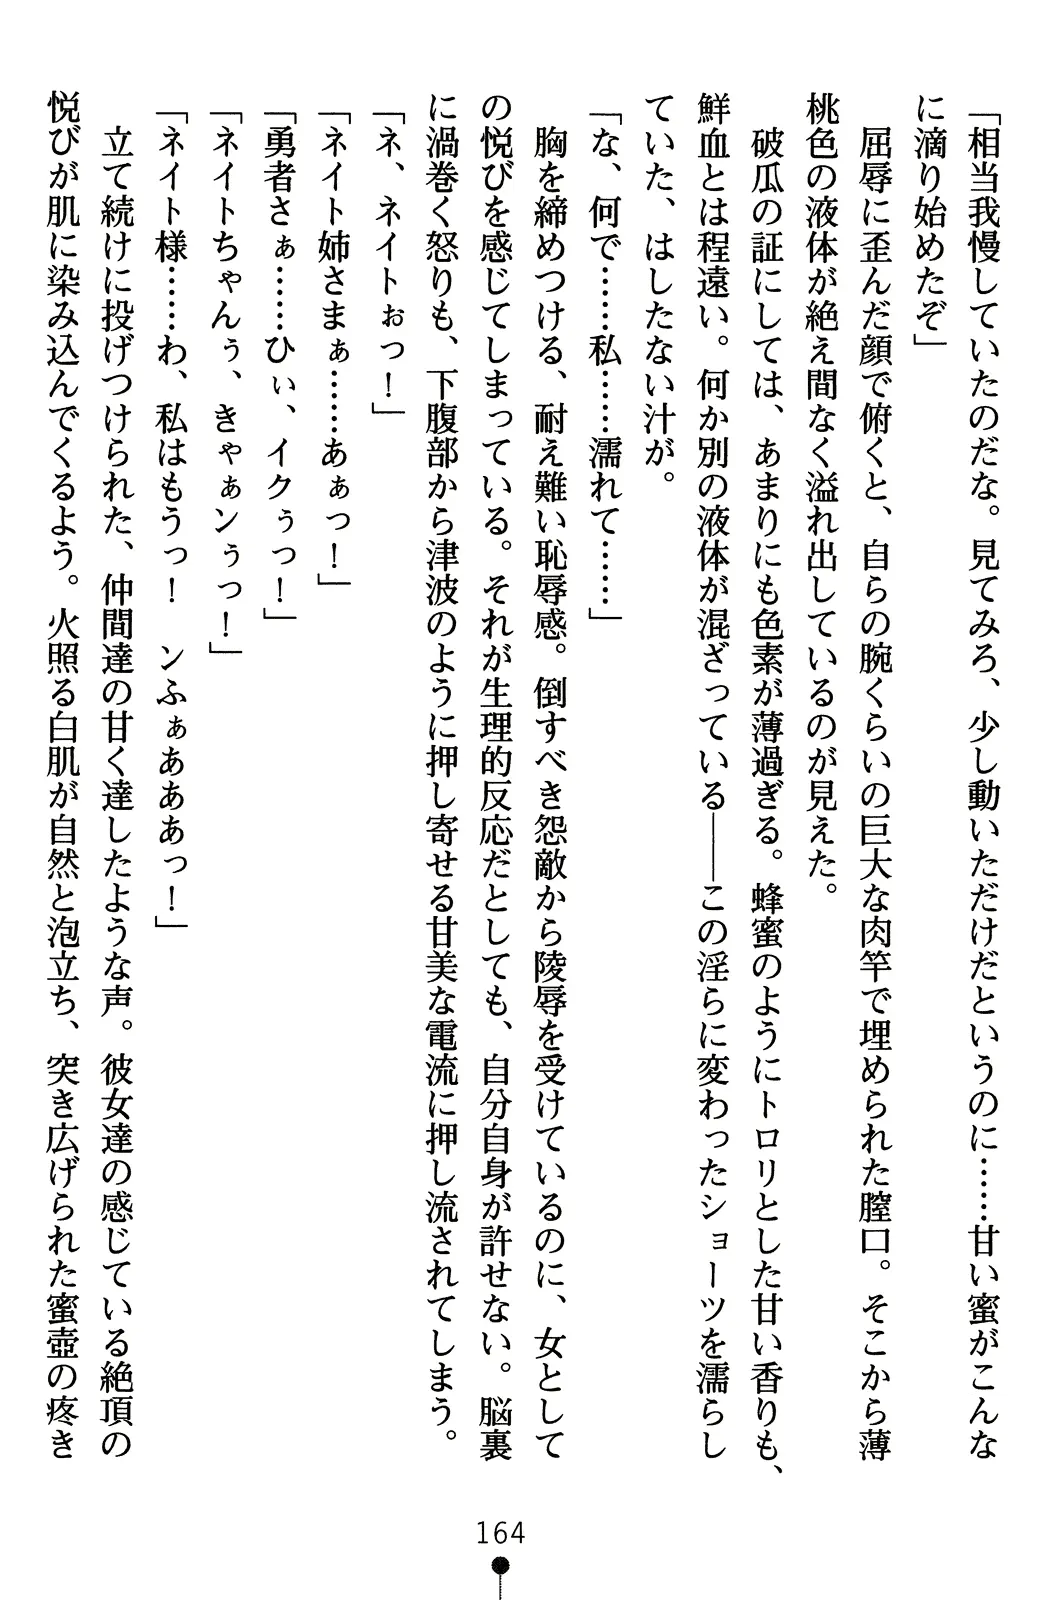 「相当我慢していたのだな。見てみろ、少し動いただけだというのに……甘い蜜がこんな
に滴り始めたぞ」
　屈辱に歪んだ顔で俯くと、自らの腕くらいの巨大な肉竿で埋められた膣口。そこから薄
桃色の液体が絶え間なく溢れ出しているのが見えた。
　破瓜の証にしては、あまりにも色素が薄過ぎる。蜂蜜のようにトロリとした甘い香りも、
鮮血とは程遠い。何か別の液体が混ざっている――この淫らに変わったショーツを濡らし
ていた、はしたない汁が。
「な、何で……私……濡れて……」
　胸を締めつける、耐え難い恥辱感。倒すべき怨敵から陵辱を受けているのに、女として
の悦びを感じてしまっている。それが生理的反応だとしても、自分自身が許せない。脳裏
に渦巻く怒りも、下腹部から津波のように押し寄せる甘美な電流に押し流されてしまう。
「ネ、ネイトぉっ！」
「ネイト姉さまぁ……あぁっ！」
「勇者さぁ……ひぃ、イクぅっ！」
「ネイトちゃんぅ、きゃぁンぅっ！」
「ネイト様……わ、私はもうっ！　ンふぁあああっ！」
　立て続けに投げつけられた、仲間達の甘く達したような声。彼女達の感じている絶頂の
悦びが肌に染み込んでくるよう。火照る白肌が自然と泡立ち、突き広げられた蜜壺の疼き
164